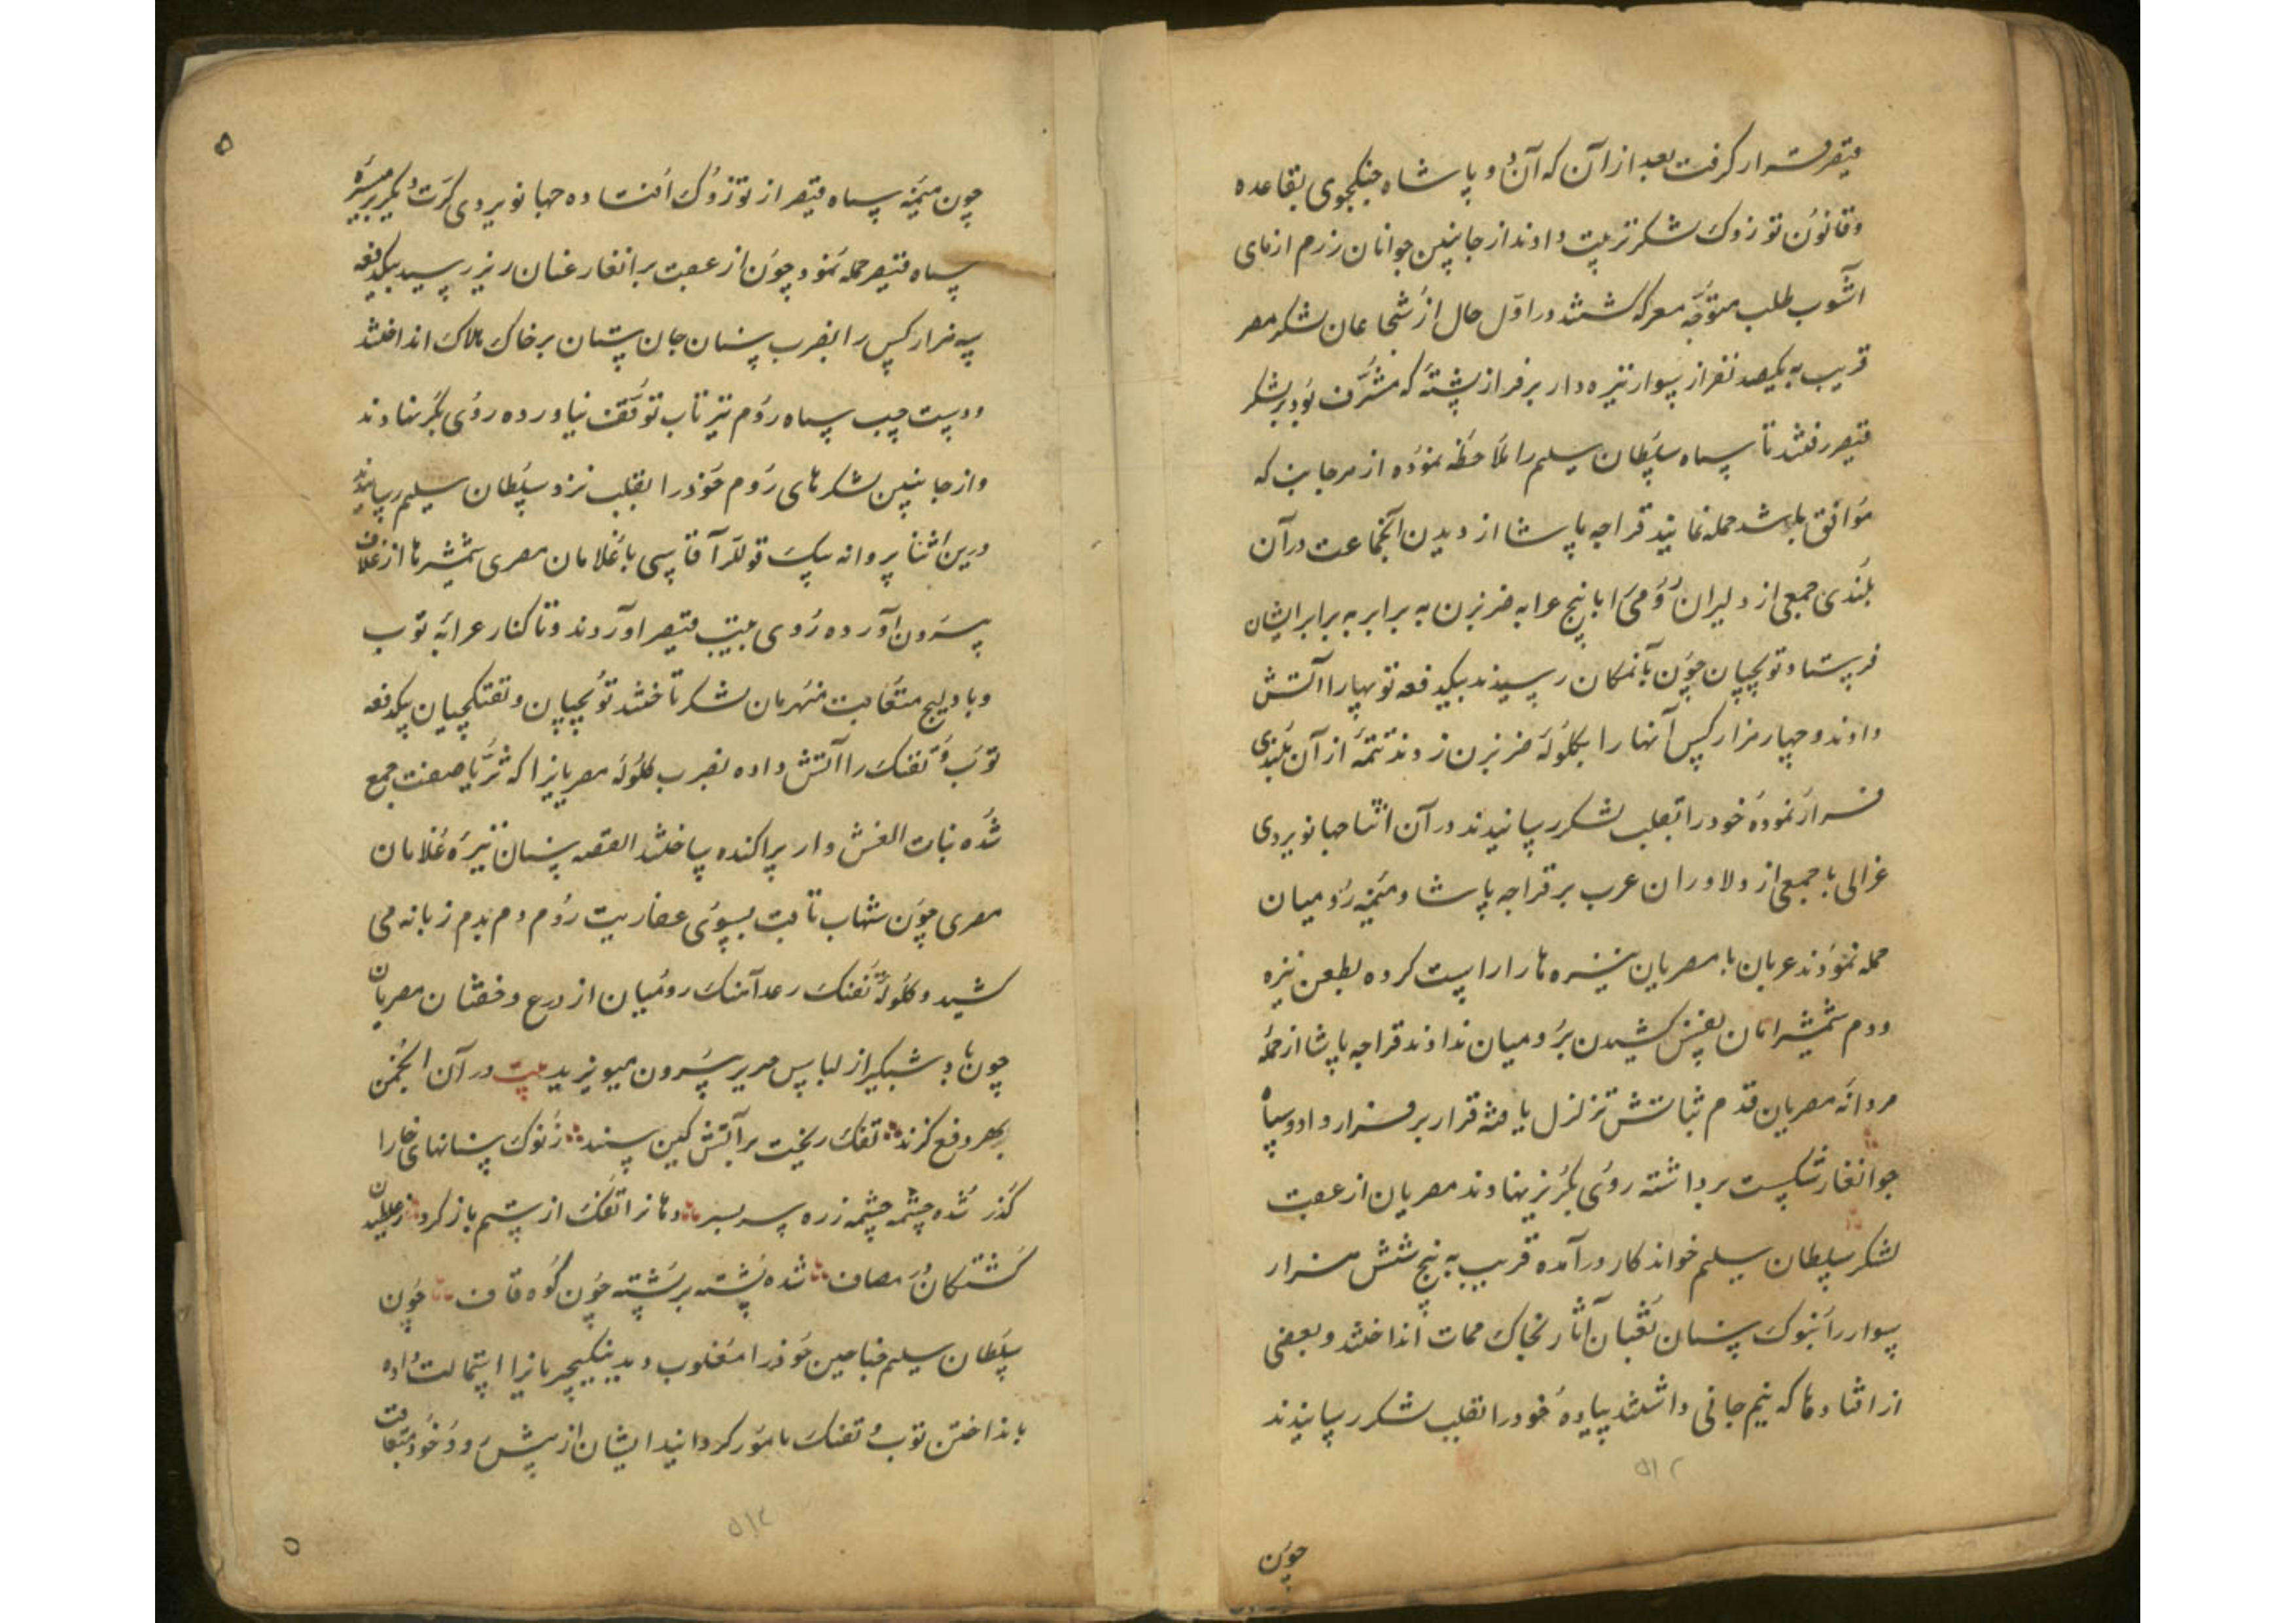 قیصر قرار گرفت بعد از آن که آن دو پاشاه جنکجوی بقاعده
و قانون توزوک لشکر ترتیب دادند از جانبین جوانان رزم ازمای
آشوب طلب متوجّه معرکه کشتند در اوّل حال از شجاعان لشکر مصر
قریب به یکیصد نفر از سوار نیزه دار بر فراز پشته که مشرّف بود بر لشکر
قیصر رفتند تا سپاه سلطان سلیم را ملاحظه نموده از هر جانب که
موافق باشد حمله نمایند قراجه پاشا از دیدن آنجماعت در آن
بلندی جمعی از دلیران رومی را با پنج عرابه ضربزن به برابر به برابر ایشان
فرستاد توپچیان چون بآنمکان رسیدند بیکدفعه توپها را آتش
دادند و چهار هزار کس آنها را بکلوله ضربزن زدند تتمّه از آن بلندی
فرار نموده خود را بقلب لشکر رسانیدند در آن اثنا جهانویردی
غزالی با جمعی از دلاوران عرب بر قراجه پاشا و میمنه رومیان
حمله نمودند عربان با مصریان نیزه ها را راست کرده بطعن نیزه
و دم شمشیر امان نفس کشیدن برومیان ندادند قراجه پاشا از حمله
مردانه مصریان قدم ثباتش تزلزل یافته قرار بر فرار داد و سپاه
جوانغار شکست برداشته روی بکریز نهادند مصریان از عقب
لشکر سلطان سلیم خواندکار در آمده قریب به پنج شش هزار
سوار را بنوک سنان ثعبان آثار بخاک ممات انداختند و بعضی
از افتادها که نیم جانی داشتند پیاده خود را بقلب لشکر رسانیدند
۵۱۲
چون
۵
چون میمنه سپاه قیصر از توزوک افتاده جهانویردی کرت دیکر بر میسره
سپاه قیصر حمله نمود چون از عقب برانغار عنان ریز رسید بیکدفعه
سه هزار کس را بضرب سنان جان ستان بر خاک هلاک انداختند
و دست چپ سپاه روم نیز تاب توقّف نیاورده روی بکریز نهادند
و از جانبین لشکرهای روم خود را بقلب نزد سلطان سلیم رسانیدند
درین اثنا پروانه بیک قوللر آقاسی با غلامان مصری شمشیرها از غلاف
بیرون آورده روی بجانب قیصر آوردند و تا کنار عرابه توپ
و بادلیج متعاقب منهزمان لشکر تاختند توپچیان و تفنکچیان بیکدفعه
توپ و تفنک را آتش داده بضرب کلوله مصریانرا که ثریّا صفت جمع
شده بنات النعش وار پراکنده ساختند القصه سنان نیزه غلامان
مصری چون شهاب ثاقب بسوی عفاریت روم دم بدم زبانه می
کشید و کلوله تفنک رعد آهنک رومیان از درع و خفتان مصریان
چون باد شبکیر از لباس حریر بیرون میوزید بیت در آن انجمن
بهر دفع کزند تفک ریخت بر آتش کین سپند ز نوک سنانهای خارا
گذر شده چشمه چشمه زره سر بسر دهانرا تفنک از ستم باز کرد ز غلطیدن
کشتکان در مصاف شده پشته بر پشته چون کوه قاف چون
سلطان سلیم جناحین خود را مغلوب دید ینکیچریانرا استمالت داده
بانداختن توپ و تفنک مامور کردانید ایشان از پیش رو و خود متعاقب
۵۱۲
۵